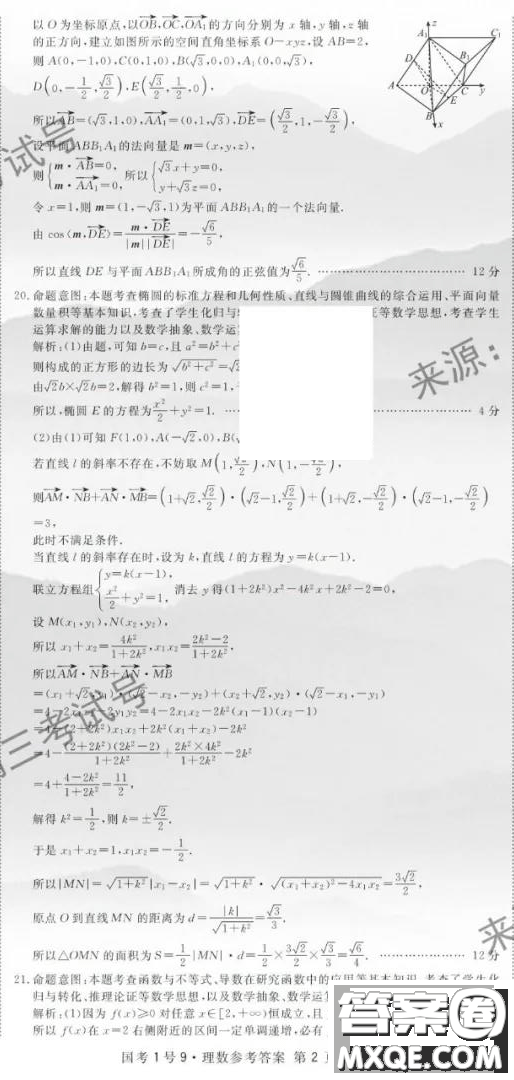 以 O 为坐标原点,以OB,OC,OA₁ 的方向分别为 x 轴,y 轴,z 轴
的正方向,建立如图所示的空间直角坐标系 O-xyz,设 AB=2,
则 A(0,-1,0),C(0,1,0),B(√3,0,0),A₁(0,0,√3),
D(0,-1/2,√3/2),E(√3/2,1/2,0),
所以AB=(√3,1,0),AA₁=(0,1,√3),DE=(√3/2,1,-√3/2),
设平面ABB₁A₁的法向量是 m=(x,y,z),
则{m·AB=0, m·AA₁=0, 所以{√3x+y=0, y+√3z=0,
令 x=1,则 m=(1,-√3,1)为平面 ABB₁A₁ 的一个法向量.
由 cos⟨m,DE⟩=m·DE/|m||DE|=-√6/5,
所以直线 DE 与平面 ABB₁A₁ 所成角的正弦值为√6/5. 12 分
z
A₁
C₁
B₁
D
A
O
C
y
E
B
x
20. 命题意图:本题考查椭圆的标准方程和几何性质、直线与圆锥曲线的综合运用、平面向量
数量积等基本知识,考查了学生化归与 等数学思想,考查学生
运算求解的能力以及数学抽象、数学运
解析:(1)由题,可知 b=c,且 a²=b²+c
则构成的正方形的边长为 √b²+c²=
由√2b×√2b=2,解得 b²=1,则 c²=1,
所以,椭圆 E 的方程为x²/2+y²=1. 4 分
(2)由(1)可知 F(1,0),A(-√2,0),B(
若直线 l 的斜率不存在,不妨取 M(1,√2/2),N(1,-√2/2),
则AM·NB+AN·MB=(1+√2,√2/2)·(√2-1,√2/2)+(1+√2,-√2/2)·(√2-1,-√2/2)
=3,
此时不满足条件.
当直线 l 的斜率存在时,设为 k,直线 l 的方程为 y=k(x-1).
联立方程组{y=k(x-1), x²/2+y²=1, 消去 y 得(1+2k²)x²-4k²x+2k²-2=0,
设 M(x₁,y₁),N(x₂,y₂),
所以 x₁+x₂=4k²/1+2k²,x₁x₂=2k²-2/1+2k².
所以AM·NB+AN·MB
=(x₁+√2,y₁)·(√2-x₂,-y₂)+(x₂+√2,y₂)·(√2-x₁,-y₁)
=4-2x₁x₂-2y₁y₂=4-2x₁x₂-2k²(x₁-1)(x₂-1)
=4-(2+2k²)x₁x₂+2k²(x₁+x₂)-2k²
=4-(2+2k²)(2k²-2)/1+2k²+2k²×4k²/1+2k²-2k²
=4+4-2k²/1+2k²=11/2,
解得 k²=1/2,则 k=±√2/2.
于是 x₁+x₂=1,x₁x₂=-1/2.
所以|MN|=√1+k²|x₁-x₂|=√1+k²·√(x₁+x₂)²-4x₁x₂=3√2/2,
原点 O 到直线 MN 的距离为 d=|k|/√1+k²=√3/3.
所以△OMN 的面积为 S=1/2|MN|·d=1/2×3√2/2×√3/3=√6/4. 12 分
21. 命题意图:本题考查函数与不等式、导数在研究函数中的应用等基本知识,考查了学生化
归与转化、推理论证等数学思想,以及数学抽象、数学运
解析:(1)因为 f(x)≥0 对任意 x∈[2,+∞)恒成立,且
所以 f(x)在 x=2 右侧附近的区间一定单调递增,必有
国考 1 号 9·理数参考答案 第 2
试号
来源:
三考试号
来
答案圈
MXQE.COM